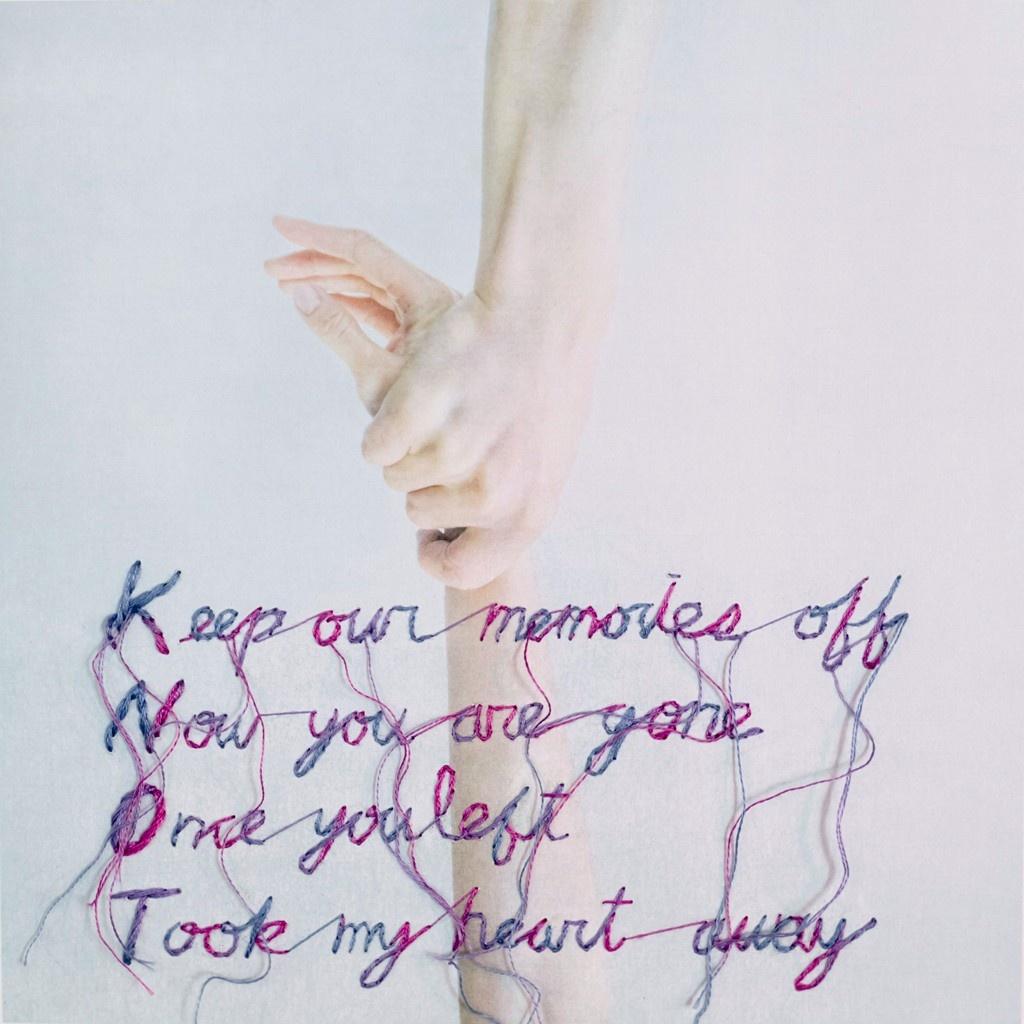 Keep our memories off
Now you are gone
Once you left
Took my heart away